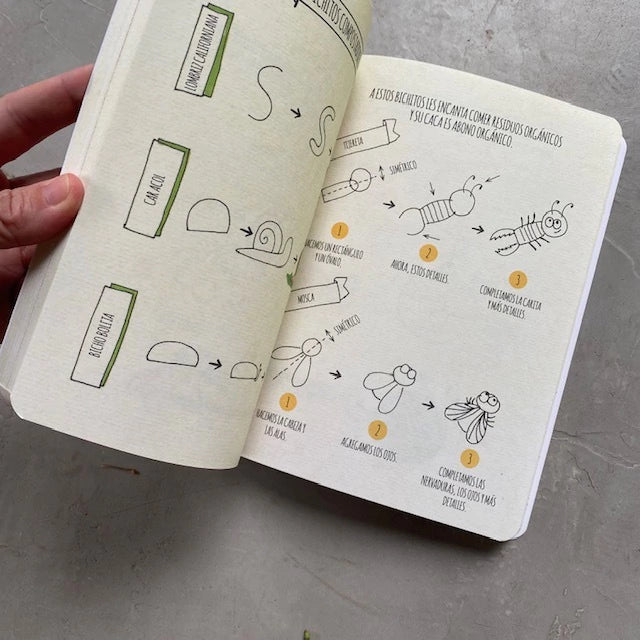 BICHITOS
LOMBRIZ CALIFORNIANA
CARACOL
BICHO BOLITA
A ESTOS BICHITOS LES ENCANTA COMER RESIDUOS ORGÁNICOS
Y SU CACA ES ABONO ORGÁNICO.
TIJERETA
SIMÉTRICO
1
HACEMOS UN RECTÁNGULO
Y UN ÓVALO.
2
AHORA, ESTOS DETALLES.
3
COMPLETAMOS LA CARITA
Y MÁS DETALLES.
MOSCA
SIMÉTRICO
1
HACEMOS LA CABEZA Y
LAS ALAS.
2
AGREGAMOS LOS OJOS.
3
COMPLETAMOS LAS
NERVADURAS, LOS OJOS Y MÁS
DETALLES.